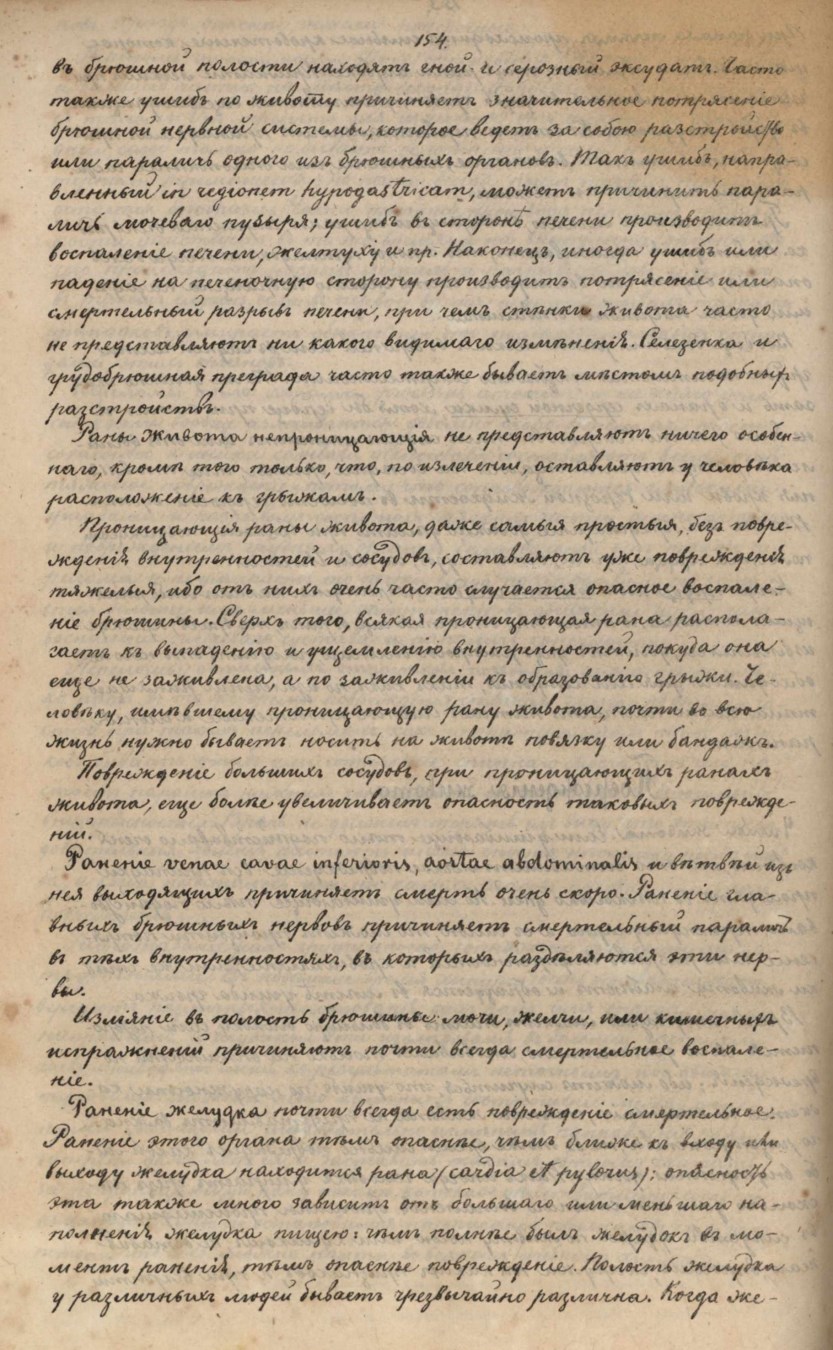 154.
въ брюшной полости находятъ гной и серозный эксудатъ. Часто
также ушибъ по животу причиняетъ значительное потрясеніе
брюшной нервной системы, которое ведетъ за собою разстройство
или параличъ одного изъ брюшныхъ органовъ. Такъ ушибъ, напра-
вленный in regionem hypogastricam, можетъ причинить пара-
личъ мочеваго пузыря; ушибъ въ сторонѣ печени производитъ
воспаленіе печени, желтуху и пр. Наконецъ, иногда ушибъ или
паденіе на печеночную сторону производитъ потрясеніе или
смертельный разрывъ печени, при чемъ стѣнки живота часто
не представляютъ ни какого видимаго измѣненія. Селезенка и
грудобрюшная преграда часто также бываетъ мѣстомъ подобныхъ
разстройствъ.
Раны живота непроницающія не представляютъ ничего особен-
наго, кромѣ того только, что, по излеченіи, оставляютъ у человѣка
расположеніе къ грыжамъ.
Проницающія раны живота, даже самыя простыя, безъ повре-
жденія внутренностей и сосудовъ, составляютъ уже поврежденія
тяжелыя, ибо отъ нихъ очень часто случается опасное воспале-
ніе брюшины. Сверхъ того, всякая проницающая рана распола-
гаетъ къ выпаденію и ущемленію внутренностей, покуда она
еще не заживлена, а по заживленіи къ образованію грыжи. Че-
ловѣку, имѣвшему проницающую рану живота, почти во всю
жизнь нужно бываетъ носить на животѣ повязку или бандажъ.
Поврежденіе большихъ сосудовъ, при проницающихъ ранахъ
живота, еще болѣе увеличиваетъ опасность таковыхъ поврежде-
ній.
Раненіе venae cavae inferioris, aortae abdominalis и вѣтвей изъ
нея выходящихъ причиняетъ смерть очень скоро. Раненіе гла-
вныхъ брюшныхъ нервовъ причиняетъ смертельный параличъ
въ тѣхъ внутренностяхъ, въ которыхъ раздѣляются эти нер-
вы.
Изліяніе въ полость брюшины мочи, желчи, или кишечныхъ
испражненій причиняютъ почти всегда смертельное воспале-
ніе.
Раненіе желудка почти всегда есть поврежденіе смертельное.
Раненіе этого органа тѣмъ опаснѣе, чѣмъ ближе къ входу или
выходу желудка находится рана (cardia et pylorus): опасность
эта также много зависитъ отъ большаго или меньшаго на-
полненія желудка пищею: чѣмъ полнѣе былъ желудокъ въ мо-
ментъ раненія, тѣмъ опаснѣе поврежденіе. Полость желудка
у различныхъ людей бываетъ чрезвычайно различна. Когда же-